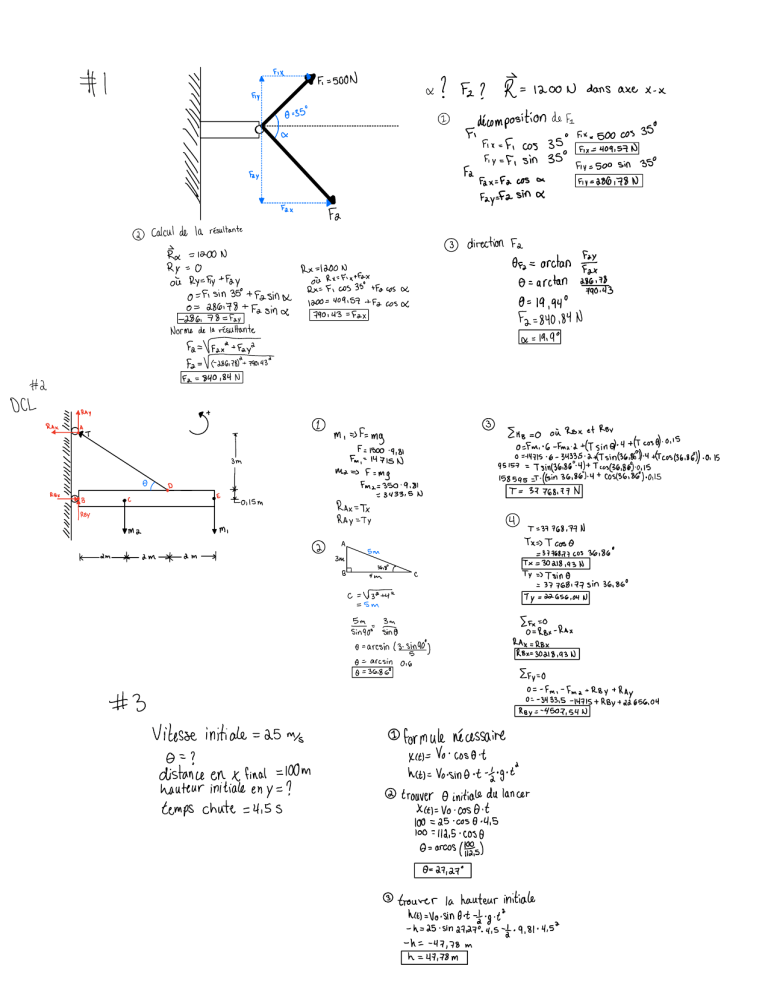 #1
F₁x
F₁ = 500N
F₁y
θ = 35°
α
F₂y
F₂x
F₂
α? F₂? R⃗ = 1200 N dans axe x-x
① décomposition de F₂
F₁
F₁x = F₁ cos 35°
F₁y = F₁ sin 35°
F₂
F₂x = F₂ cos α
F₂y = F₂ sin α
F₁x = 500 cos 35°
F₁x = 409,57 N
F₁y = 500 sin 35°
F₁y = 286,78 N
② Calcul de la résultante
R⃗x = 1200 N
Ry = 0
où Ry = F₁y + F₂y
0 = F₁ sin 35° + F₂ sin α
0 = 286,78 + F₂ sin α
-286,78 = F₂y
Norme de la résultante
F₂ = √F₂x² + F₂y²
F₂ = √(-286,78)² + 790,43²
F₂ = 840,84 N
Rx = 1200 N
où Rx = F₁x + F₂x
Rx = F₁ cos 35° + F₂ cos α
1200 = 409,57 + F₂ cos α
790,43 = F₂x
③ direction F₂
θF₂ = arctan F₂y / F₂x
θ = arctan 286,78 / 790,43
θ = 19,94°
F₂ = 840,84 N
α = 19,9°
#2
DCL
RAy
RAx
A
T
+
3m
θ
D
E
0,15m
RBx
B
C
RBy
m₂
m₁
2m
2m
2m
①
m₁ => F = mg
F = 1500 · 9,81
Fm₁ = 14 715 N
m₂ => F = mg
Fm₂ = 350 · 9,81
= 3433,5 N
RAx = Tx
RAy = Ty
②
A
5m
3m
36,8°
B
4m
C
c = √3² + 4²
= 5m
5m / sin 90° = 3m / sin θ
θ = arcsin (3 · sin 90° / 5)
θ = arcsin 0,6
θ = 36,86°
③
ΣMB = 0 où RBx et RBy
0 = Fm₁ · 6 - Fm₂ · 2 + (T sin θ) · 4 + (T cos θ) · 0,15
0 = -14715 · 6 - 3433,5 · 2 + (T sin(36,86°)) · 4 + (T cos(36,86°)) · 0,15
95157 = T sin(36,86° · 4) + T cos(36,86) · 0,15
158595 = T · ((sin 36,86) · 4 + cos(36,86) · 0,15
T = 37 768,77 N
④
T = 37 768,77 N
Tx => T cos θ
= 37768,77 cos 36,86°
Tx = 30218,93 N
Ty => T sin θ
= 37 768,77 sin 36,86°
Ty = 22 656,04 N
ΣFx = 0
0 = RBx - RAx
RAx = RBx
RBx = 30218,93 N
ΣFy = 0
0 = -Fm₁ - Fm₂ + RBy + RAy
0 = -3433,5 - 14715 + RBy + 22 656,04
RBy = -4507,54 N
#3
Vitesse initiale = 25 m/s
θ = ?
distance en x final = 100m
hauteur initiale en y = ?
temps chute = 4,5 s
① formule nécessaire
x(t) = V₀ · cos θ · t
h(t) = V₀ · sin θ · t - 1/2 · g · t²
② trouver θ initiale du lancer
x(t) = V₀ · cos θ · t
100 = 25 · cos θ · 4,5
100 = 112,5 · cos θ
θ = arcos (100 / 112,5)
θ = 27,27°
③ trouver la hauteur initiale
h(t) = V₀ · sin θ · t - 1/2 · g · t²
-h = 25 · sin 27,27° · 4,5 - 1/2 · 9,81 · 4,5²
-h = -47,78 m
h = 47,78 m